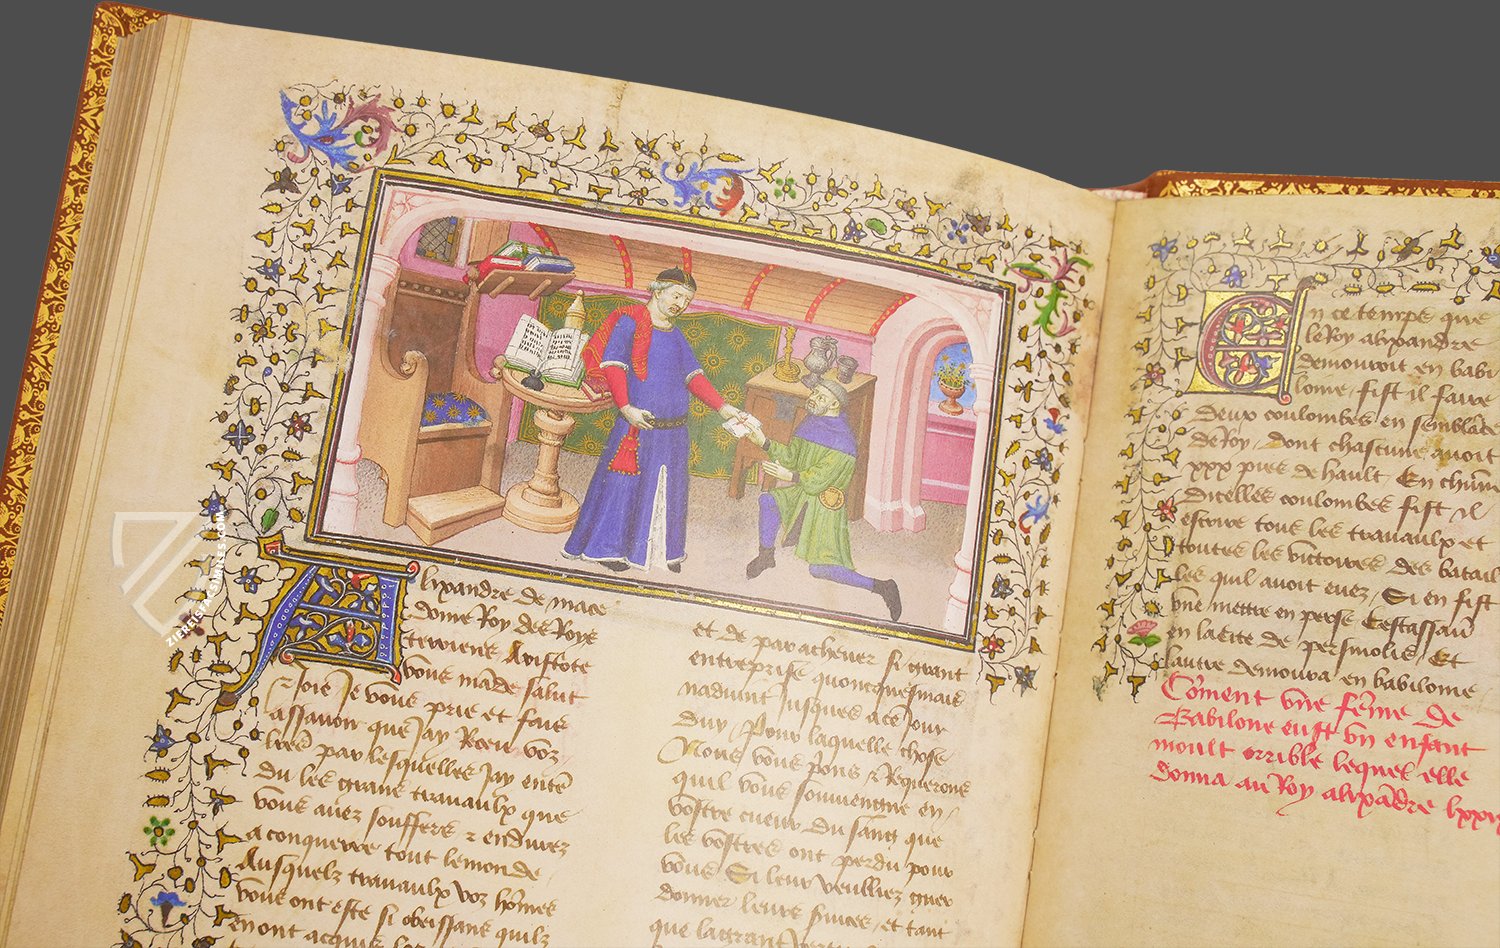 Alixandre de mace
doine Roy des Roys
terriens Aristote
vous māde salut
⁊ Joie Je vous prie et fais
assavoir que Jay Receu voz
lrēs par lesquelles Jay entē
du les grans travaulx que
vous avez soufferz ⁊ endurez
a conquerre tout le monde
Ausquelz travaulx voz hōmes
vous ont este si obeissans quilz
en ont acquis
et de parachever si grant
entreprise quoncquesmais
naduint Jusques a ce Jour
duy Pour laquelle chose
Nous vous prions ⁊ Requerons
quil vous souviengne en
vostre cueur du sang que
les vostres ont perdu pour
vous Si leur veulliez
donner leurs et tant
que la grant
En ce temps que
le Roy alixandre
demouroit en babi
lonne fist il faire
deux coulombes en semblāce
de Roy dont chascune avoit
xxx piez de hault En chūne
dicelles coulombes fist il
escrire tous les travaulx et
toutes les victoires des batail
les quil avoit euez Si en fist
vne mettre en perse
en la cite de persipolis Et
lautre demoura en babilonne
Cōment vne fēme de
Babilone eust vn enfant
moult orrible lequel elle
donna au Roy alixādre
ZIEREIS-FACSIMILES.COM